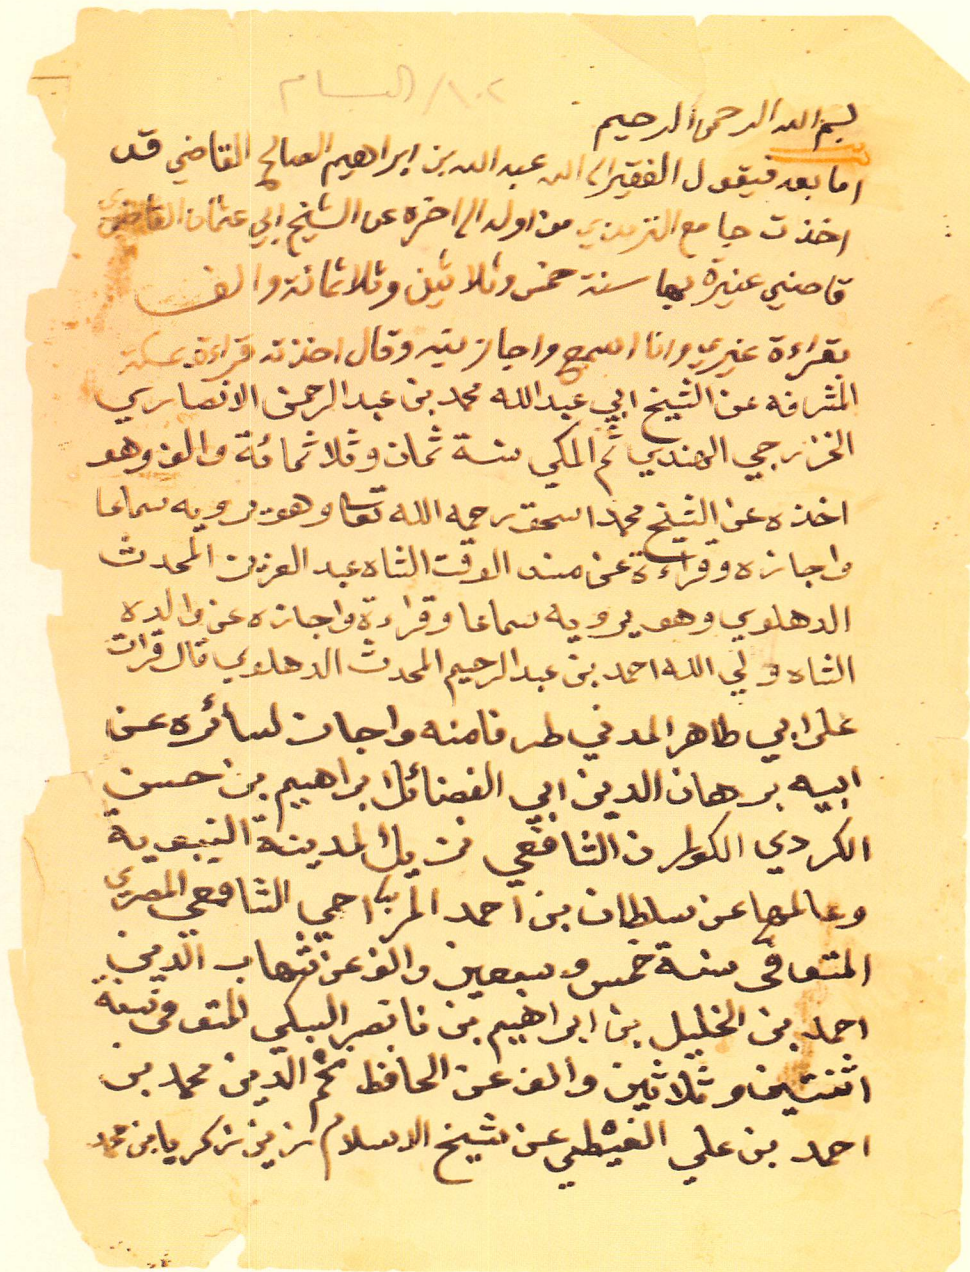 ١٠٢/البسام
بسم الله الرحمن الرحيم
اما بعد فيقول الفقير الى الله عبد الله بن ابراهيم الصالح القاضي قد
اخذت جامع الترمذي من اوله الى اخره عن الشيخ ابي عثمان القاضي
قاضي عنيزة بها سنة خمس وثلاثين وثلاثمائة والف
بقراءة غيري وانا اسمع واجازنيه وقال اخذته قراءة بمكة
المشرفه عن الشيخ ابي عبد الله محمد بن عبد الرحمن الانصاري
الخزرجي الهندي ثم المكي سنة ثمان وثلاثمائة والف وهو
اخذه عن الشيخ محمد اسحق رحمه الله تعا وهو يرويه سماعا
واجازه وقراءة عن مسند الوقت الشاه عبد العزيز المحدث
الدهلوي وهو يرويه سماعا وقراءة واجازه عن والده
الشاه ولي الله احمد بن عبد الرحيم المحدث الدهلوي قال قرات
على ابي طاهر المدني طرفا منه واجاز لسائره عن
ابيه برهان الدين ابي الفضائل ابراهيم بن حسن
الكردي الكوراني الشافعي نزيل المدينة النبوية
وعالمها عن سلطان بن احمد المزاحي الشافعي المصري
المتوافى سنة خمس وسبعين والف عن شهاب الدين
احمد بن الخليل بن ابراهيم بن ناصر السبكي المتوفى سنة
اثنتين وثلاثين والف عن الحافظ نجم الدين محمد بن
احمد بن علي الغيطي عن شيخ الاسلام زين زكريا بن محمد